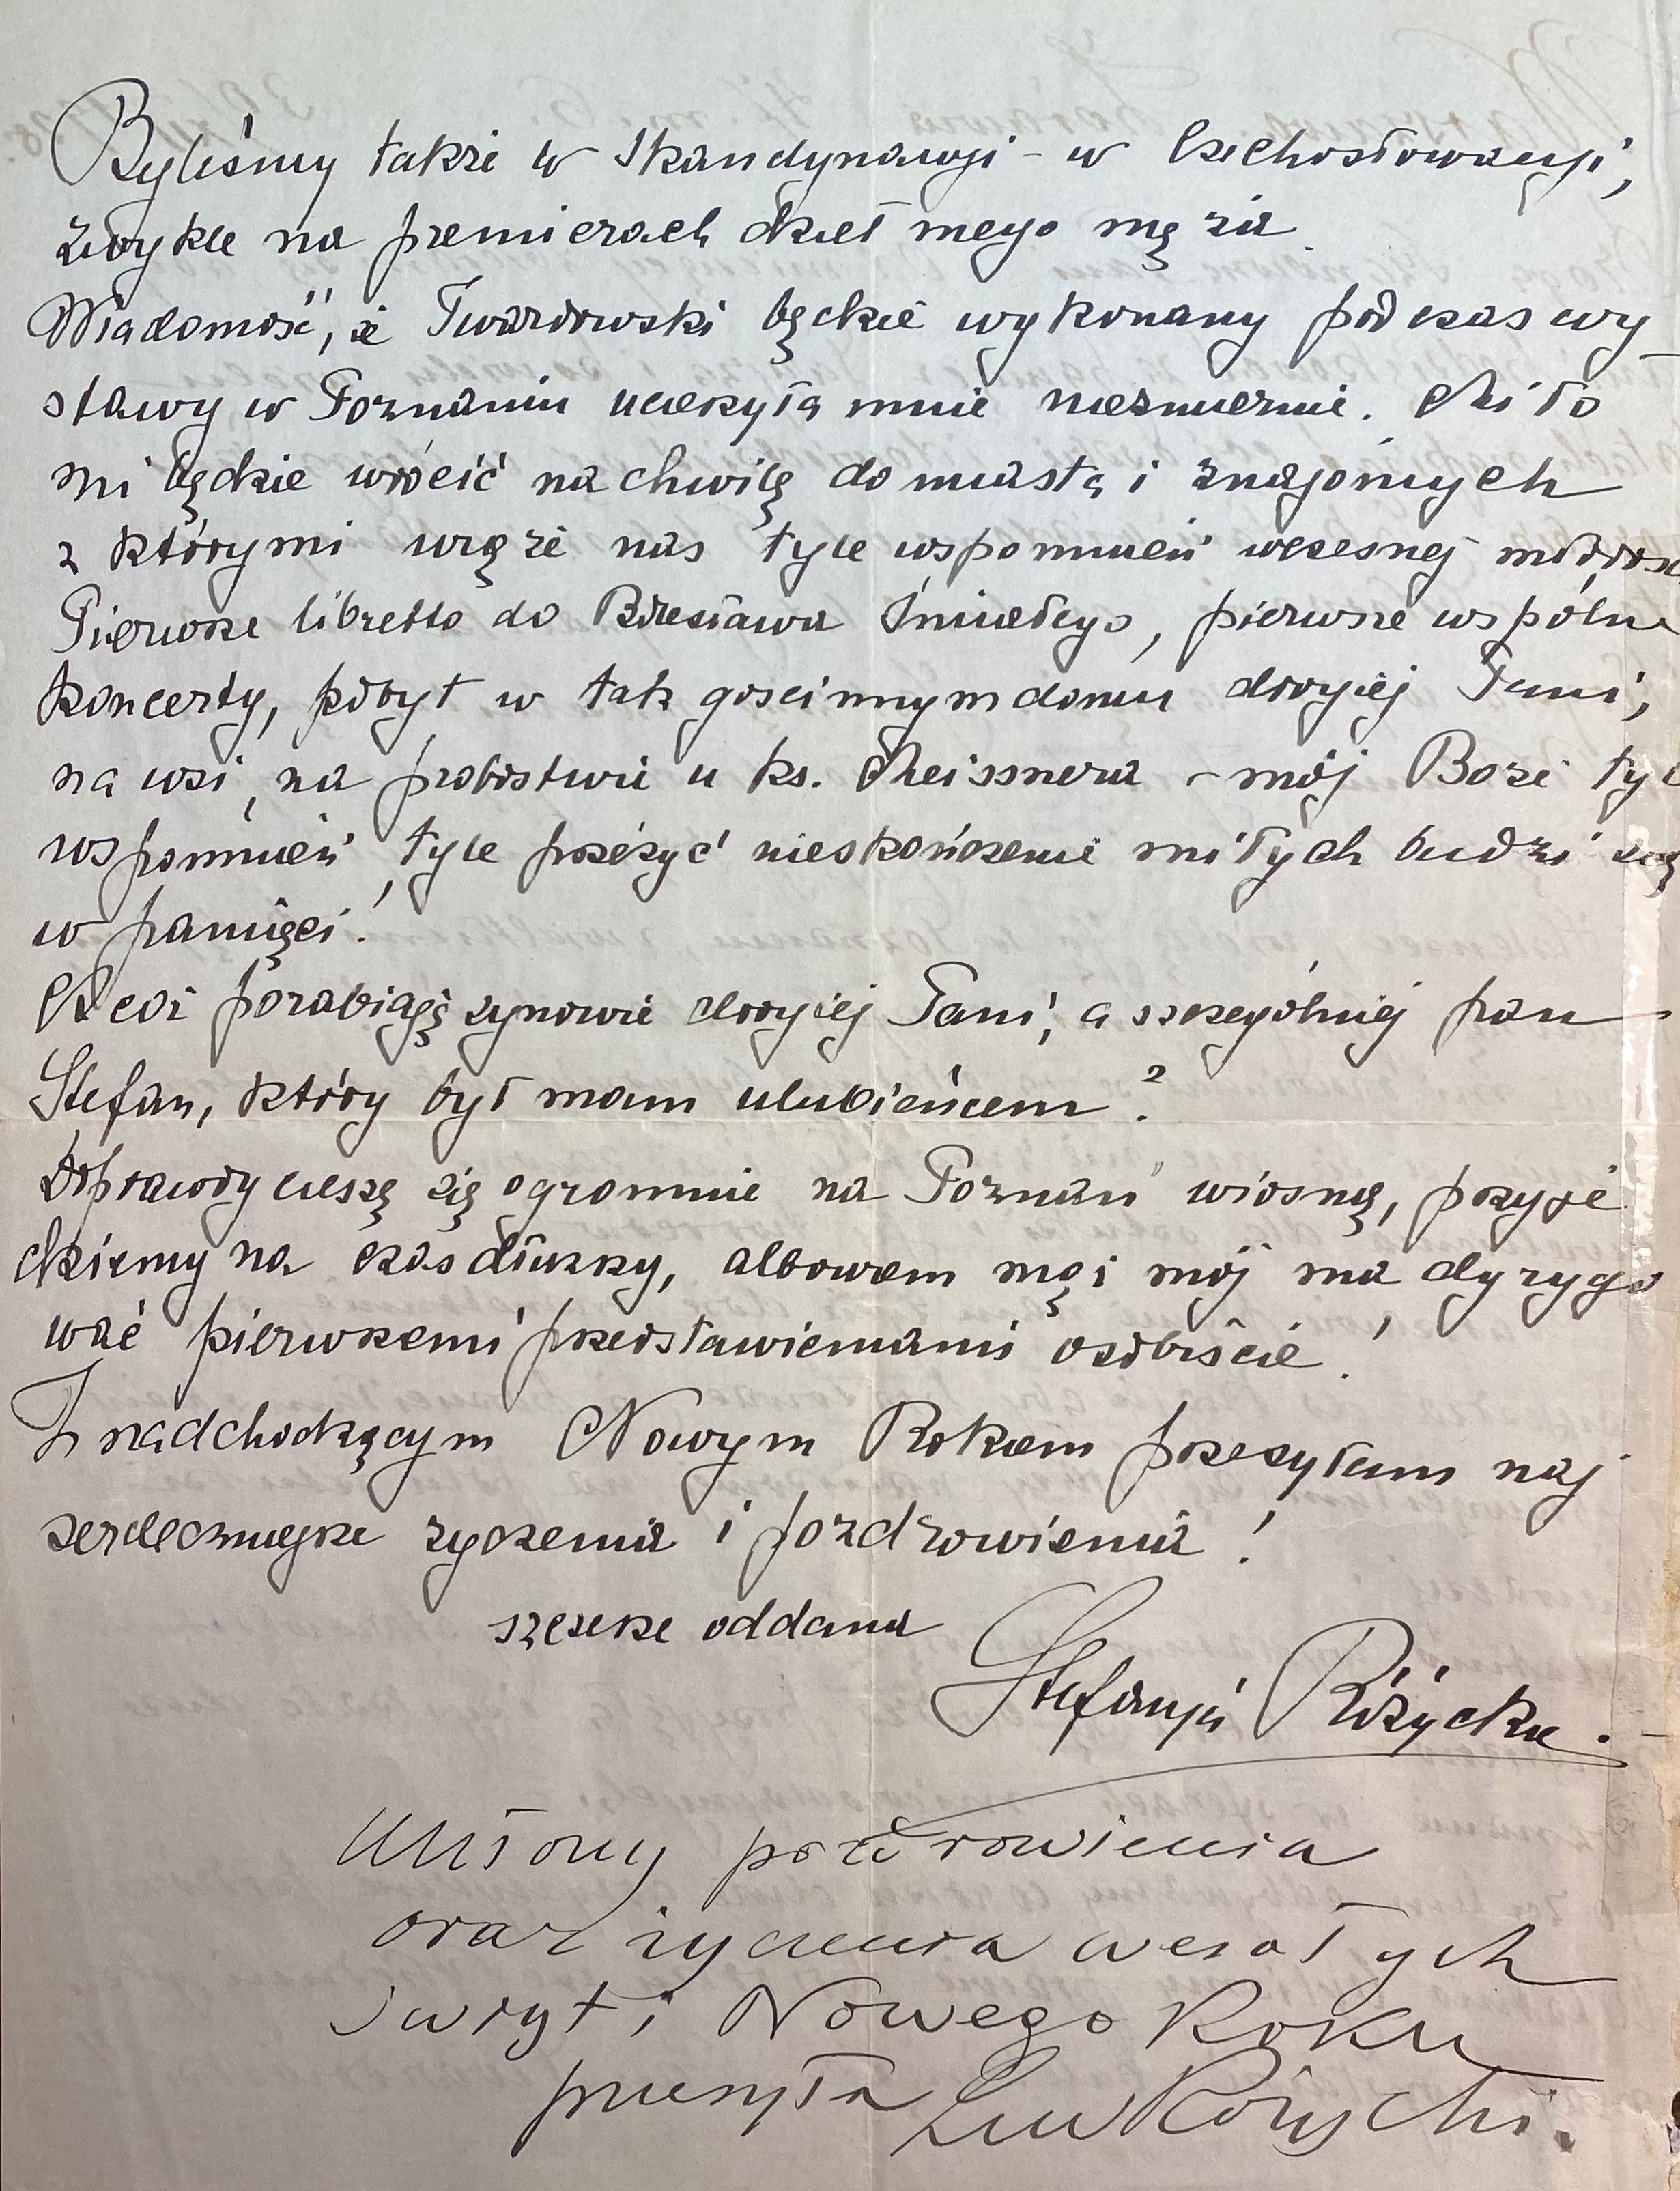 Byliśmy także w Skandynawji – w Czechosłowacji,
zwykle na premierach dzieł mego męża.
Wiadomość, że Twardowski będzie wykonany podczas wy-
stawy w Poznaniu ucieszyła mnie niezmiernie. Miło
mi będzie wrócić na chwilę do miasta i znajomych
z którymi wiąże nas tyle wspomnień wczesnej młodośc
Pierwsze libretto do Bolesława Śmiałego, pierwsze wspólne
koncerty, pobyt w tak gościnnym domu drogiej Pani,
na wsi, na probostwie u ks. Meissnera – mój Boże tyl
wspomnień, tyle przeżyć nieskończenie miłych budzi się
w pamięci!
Cóż porabiają synowie drogiej Pani, a szczególniej pan
Stefan, który był moim ulubieńcem?
Doprawdy cieszę się ogromnie na Poznań wiosną, przyje
dziemy na czas dłuższy, albowiem mąż mój ma dyrygo
wać pierwszemi przedstawieniami osobiście!
Z nadchodzącym Nowym Rokiem przesyłam naj
serdeczniejsze życzenia i pozdrowienia!
szczerze oddana
Stefanja Różycka.
Ukłony pozdrowienia
oraz życzenia wesołych
Świąt i Nowego Roku
przesyła Lud Różycki.